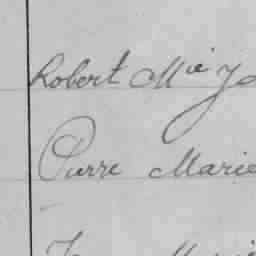 Robert Mie
Pierre Marie